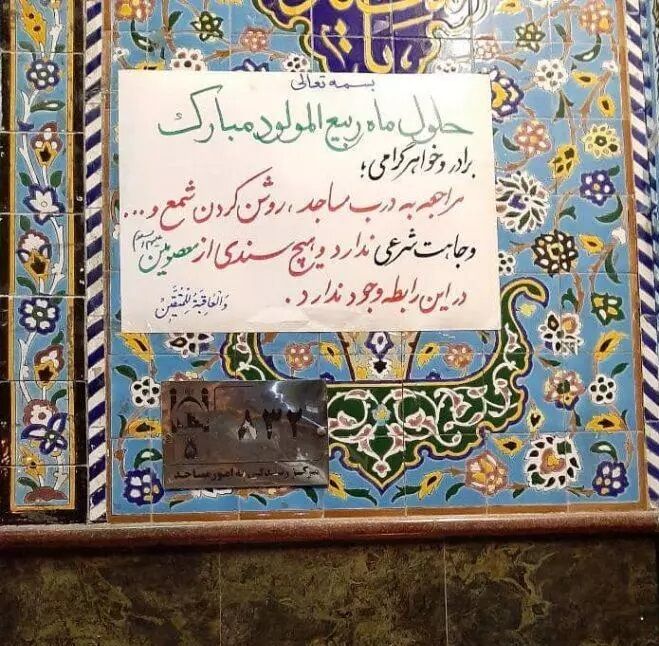 بسمه تعالی
حلول ماه ربیع المولود مبارک
برادر و خواهر گرامی؛
مراجعه به درب مساجد، روشن کردن شمع و...
وجاهت شرعی ندارد و هیچ سندی از معصومین علیهم السلام
در این رابطه وجود ندارد.
والعاقبة للمتقین
۸۳۲۰
۵
مرکز رسیدگی به امور مساجد